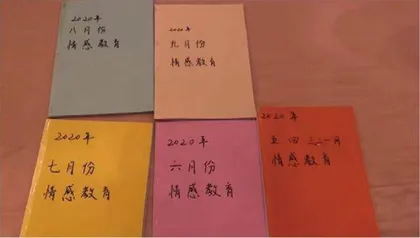 2020年
八月份
情感教育
2020年
九月份
情感教育
2020年
七月份
情感教育
2020年
六月份
情感教育
2020年
五四三二一月
情感教育